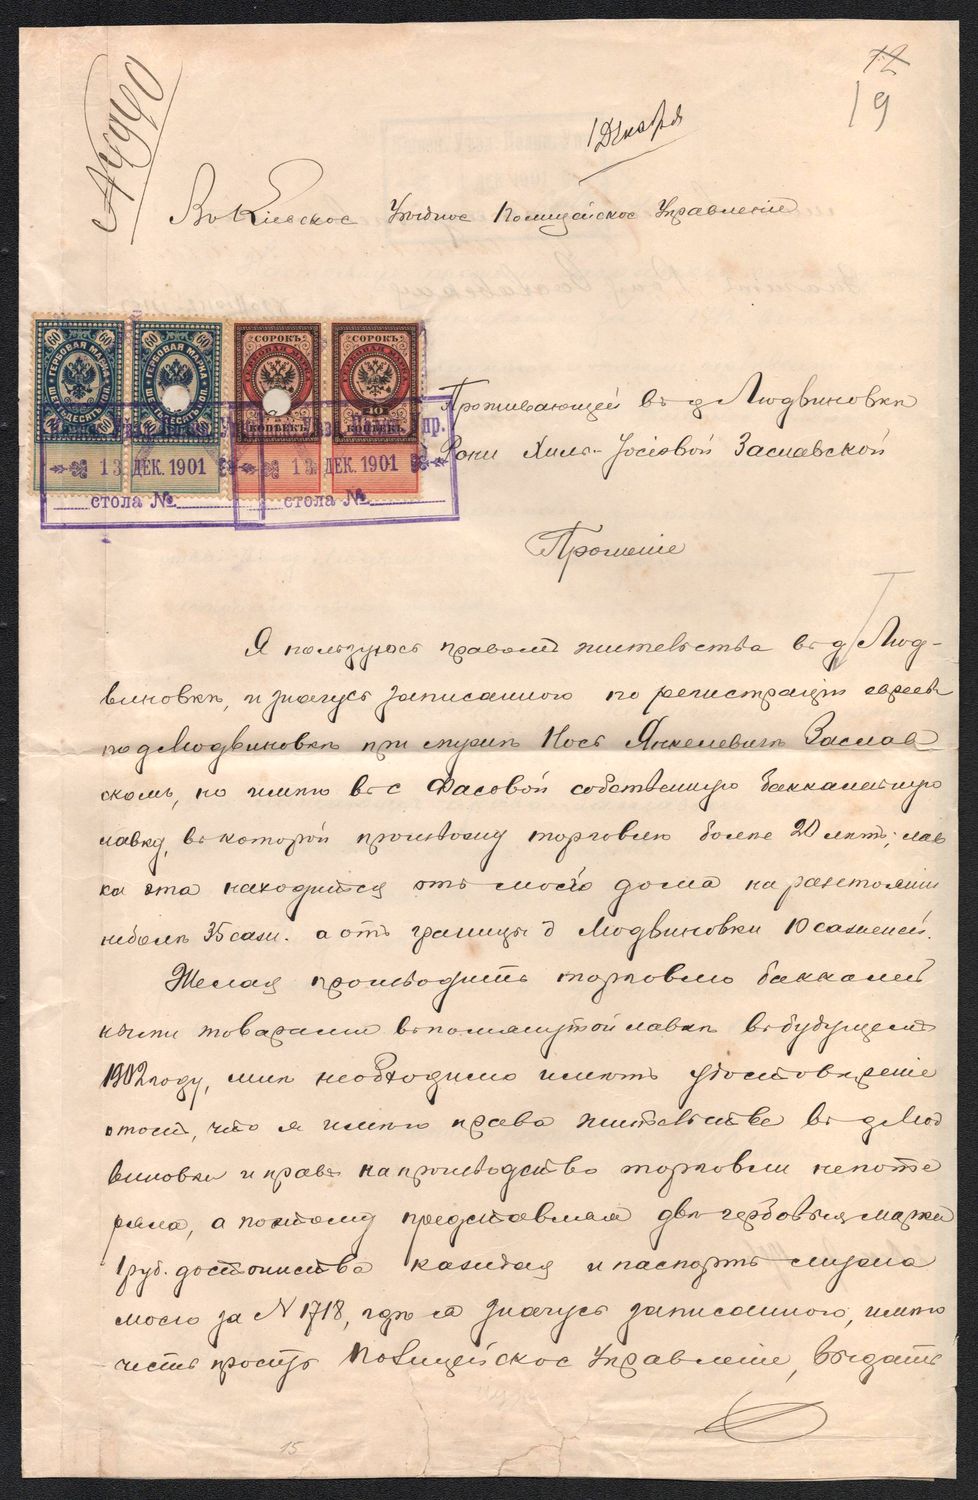 12
19
№4940
1 Декабря
Въ Кіевское Уѣздное Полицейское Управленіе
60 60 60 60
ГЕРБОВАЯ МАРКА ГЕРБОВАЯ МАРКА
ШЕСТЬДЕСЯТЪ КОП. ШЕСТЬДЕСЯТЪ КОП.
СОРОКЪ СОРОКЪ
ГЕРБОВАЯ МАРКА ГЕРБОВАЯ МАРКА
40
КОПѢЕКЪ КОПѢЕКЪ
13 ДЕК. 1901 13 ДЕК. 1901
стола № стола №
Проживающей въ д Людвиновкѣ
Хиль-Іосевой Заславской
Прошеніе
Я пользуюсь правомъ жительства въ д Люд-
виновкѣ, и значусь записанною по регистраціи евреевъ
по д Людвиновкѣ при мужѣ Янкелевичѣ Заслав
скомъ, но имѣю въ с Фасовой собственную баккалейную
лавку, въ которой произвожу торговлю болѣе 20 лѣтъ; лав
ка эта находится отъ моего дома на разстояніи
неболѣ 35 саж. а отъ границы д Людвиновки 10 саженей.
Желая производить торговлю баккалей
ными товарами въ помянутой лавкѣ въ будущемъ
1902 году, мнѣ необходимо имѣть удостовѣреніе
отомъ, что я имѣю право жительства въ д Люд
виновки и права на производство торговли не поте
ряла, а поэтому представляя двѣ гербовыя марки
1 руб. достоинства каждая и паспортъ мужа
моего за N 1718, гдѣ я значусь записанною, имѣю
честь просить Полицейское Управленіе, выдать
15